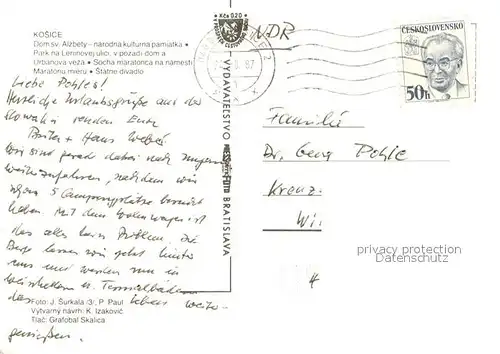 KOŠICE
Dom sv. Alžbety – národná kultúrna pamiatka •
Park na Leninovej ulici, v pozadí dóm a
Urbanova veža • Socha maratónca na námestí
Maratónu mieru • Štátne divadlo
Liebe Pehles!
Herzliche Urlaubsgrüße aus der
Slowakei senden Euch
+ Hans
Wir sind gerade dabei nach Ungarn
weiterzufahren, nachdem wir
5 Campingplätze
haben. Mit dem Wohnwagen ist
das alles kein Problem. Die
Berge lassen wir jetzt hinter
uns und werden nun in
u. Thermalbädern
das Leben weiter
genießen.
Foto: J. Šurkala /3/, P. Paul
Výtvarný návrh: K. Izakovič
Tlač: Grafobal Skalica
Kčs 0,20
VYDAVATEĽSTVO
BRATISLAVA
NDR
87
ČESKOSLOVENSKO
50h
Familie
Dr. Georg Pehle
Kreuz
Wi
privacy protection
Datenschutz